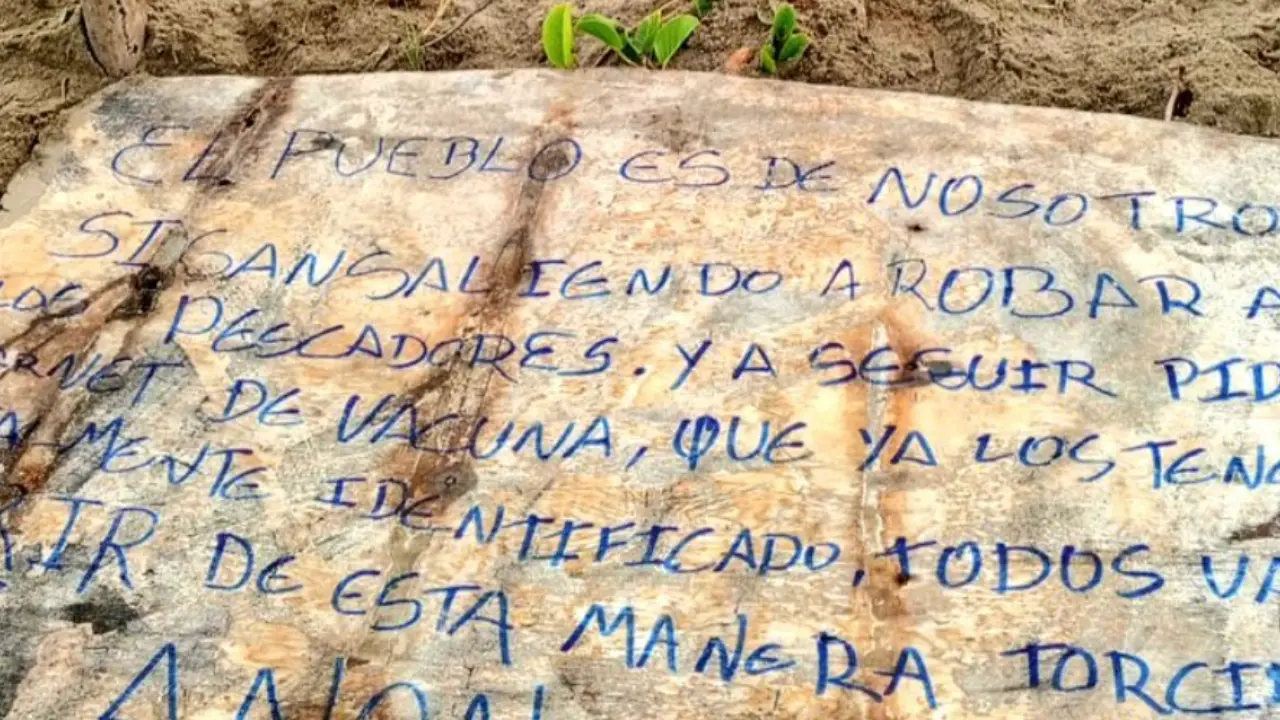 EL PUEBLO ES DE NOSOTRO
SIGANSALIENDO A ROBAR A
LOS PESCADORES. Y A SEGUIR PID
ERNET DE VACUNA, QUE YA LOS TENG
ALMENTE IDENTIFICADO, TODOS VA
RIR DE ESTA MANERA TORCI